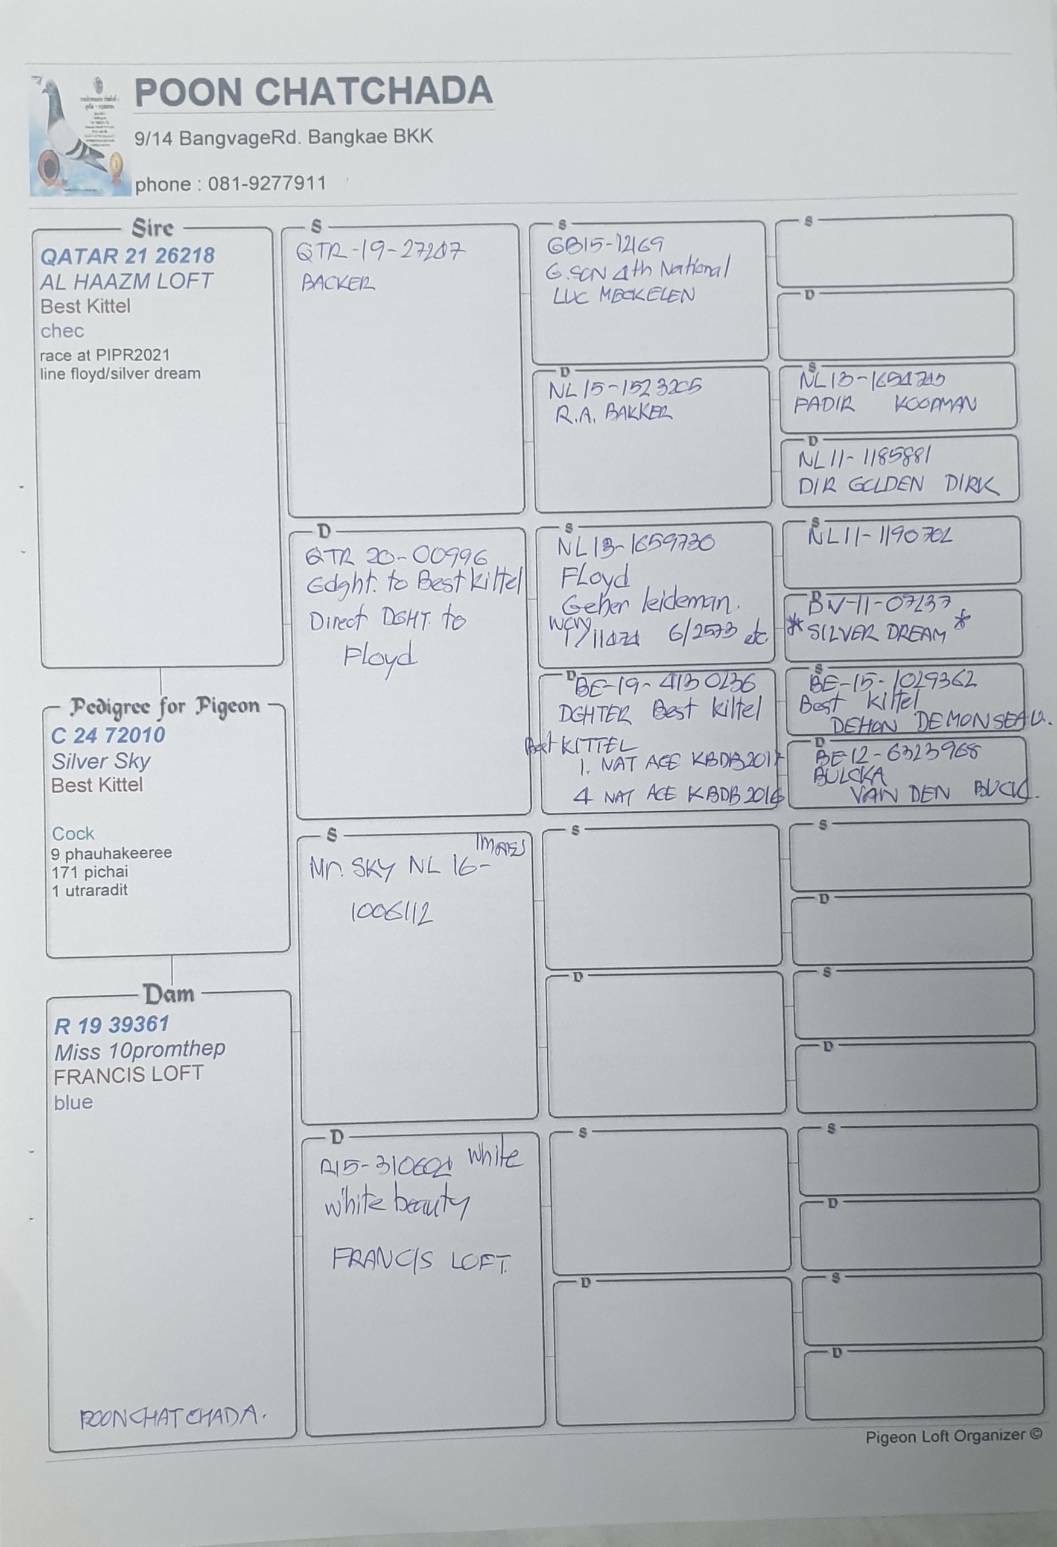 POON CHATCHADA
9/14 BangvageRd. Bangkae BKK
phone : 081-9277911
Sire
QATAR 21 26218
AL HAAZM LOFT
Best Kittel
chec
race at PIPR2021
line floyd/silver dream
Pedigree for Pigeon
C 24 72010
Silver Sky
Best Kittel
Cock
9 phauhakeeree
171 pichai
1 utraradit
Dam
R 19 39361
Miss 10promthep
FRANCIS LOFT
blue
POONCHATCHADA.
S
BACKER
D
QTR 20-00996
Gdght. to Best kittel
Direct DGHT to
Floyd
S
Mr. SKY NL 16-
1006112
D
White
White beauty
FRANCIS LOFT.
S
GB15-12169
G.SON 4th National
LUC MECKELEN
D
NL 15-1523205
R.A. BAKKER
S
NL13-1659730
Floyd
Geber leideman.
6/2573 etc
D
BE-19-4130236
DGHTER Best kittel
Best KITTEL
1. NAT ACE KBDB2017
4 NAT ACE KBDB 2016
S
D
S
D
S
D
S
PADIR KOOPMAN
D
NL11-1185881
DIR GOLDEN DIRK
S
NL11-1190702
*SILVER DREAM*
S
BE-15-1029362
Best kittel
DEHON DEMONSEAU.
D
BE12-6323968
BULCKA
VAN DEN
S
D
S
D
S
D
S
D
Pigeon Loft Organizer ©